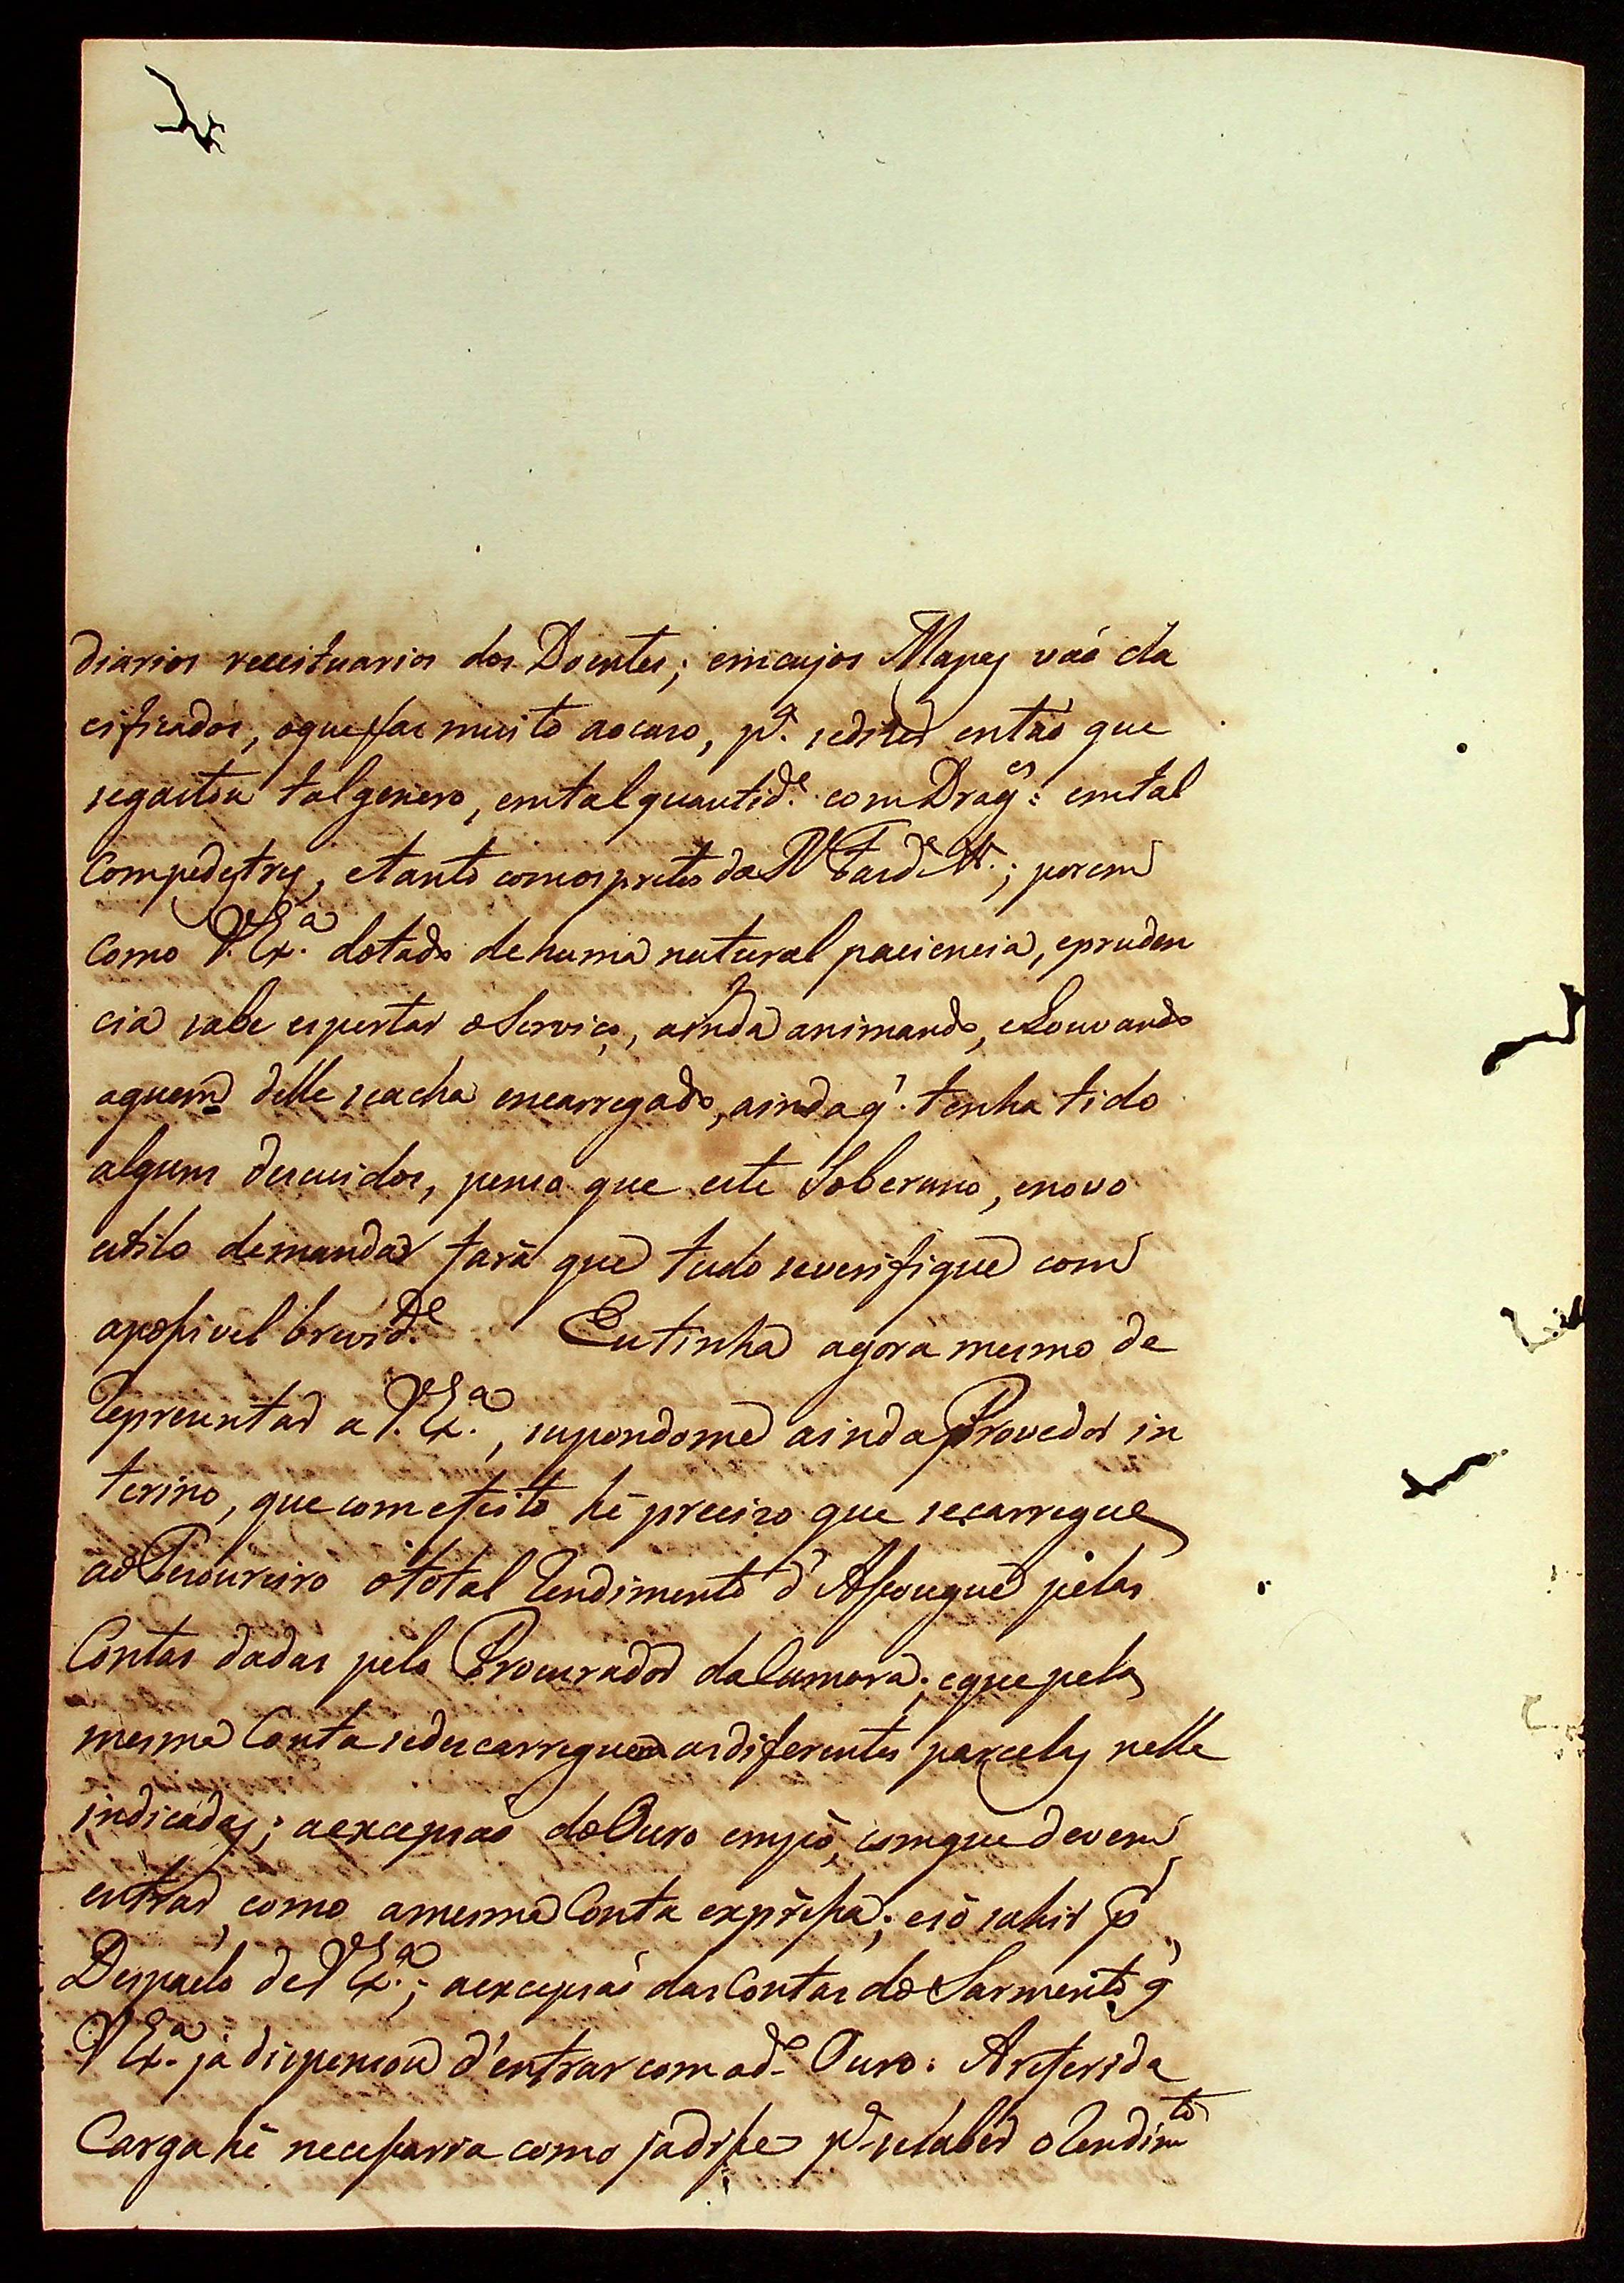 diarios receituarios dos Doentes; emcujos Mapas vaõ cla
cificados, oquefas muito aocaso, pª. sedizer entaõ que
segastou tal genero, emtal quantidᵉ. com Dragᵉˢ: emtal
Compedestres, etanto comospretos da Rˡ Fazdᵃ.; porem
Como V. Exª. dotado dehuma natural paciencia, epruden
cia sabe espertar oServiço, ainda animando, eLouvando
aquem delle seacha encarregado, ainda q̃. tenha tido
alguns descuidos, penso que este Soberano, enovo
estilo demandar fará que tudo severifique com
aposivel brevidᵉ. Eutinha agora mesmo de
Reprecentar a V. Exª., supondome ainda Provedor in
terino, que comefeito hé precizo que secarregue
ao Tesoureiro ototal Rendimento d'Asougue pelas
Contas dadas pelo Procurador daCamara; eque pelas
mesma Conta sedescarreguem asdiferentes parcelas nella
indicadas; aexcepsaõ do Ouro empó, comque devem
entrar, como amesma Conta expressa; esó sahir p
Despacho de V Exª.; aexcepsaõ dasContas do Sarmento q̃
V Exª. já dispensou d'entrar com odº Ouro: Areferida
Carga hé necessaria como jadisse pª. seSaber oRendimᵗᵒ